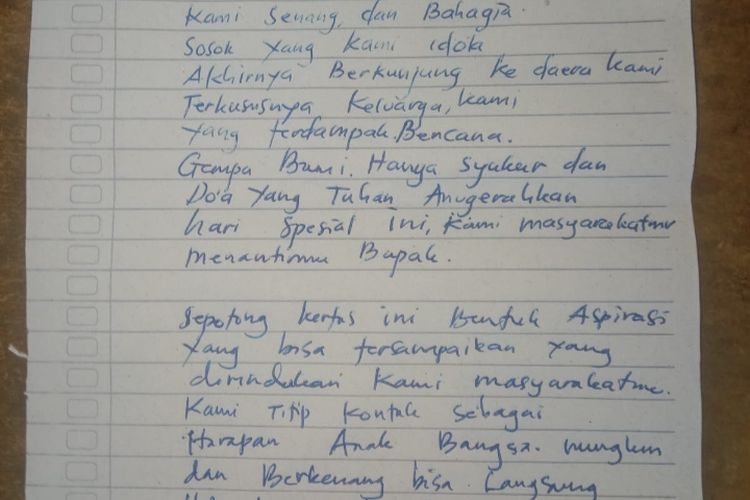 Kami Senang, dan Bahagia.
Sosok yang kami idola
Akhirnya Berkunjung ke daera kami
Terkususnya Keluarga, kami
yang terdampak Bencana.
Gempa Bumi. Hanya syukur dan
Do'a yang Tuhan Anugerahkan
hari Spesial ini, kami masyarakatmu
menantimu Bapak.
Sepotong kertas ini Bentuk Aspirasi
yang bisa tersampaikan yang
dirindukan Kami masyarakatmu.
Kami Titip kontak sebagai
Harapan Anak Bangsa. mungkin
dan Berkenang bisa Langsung